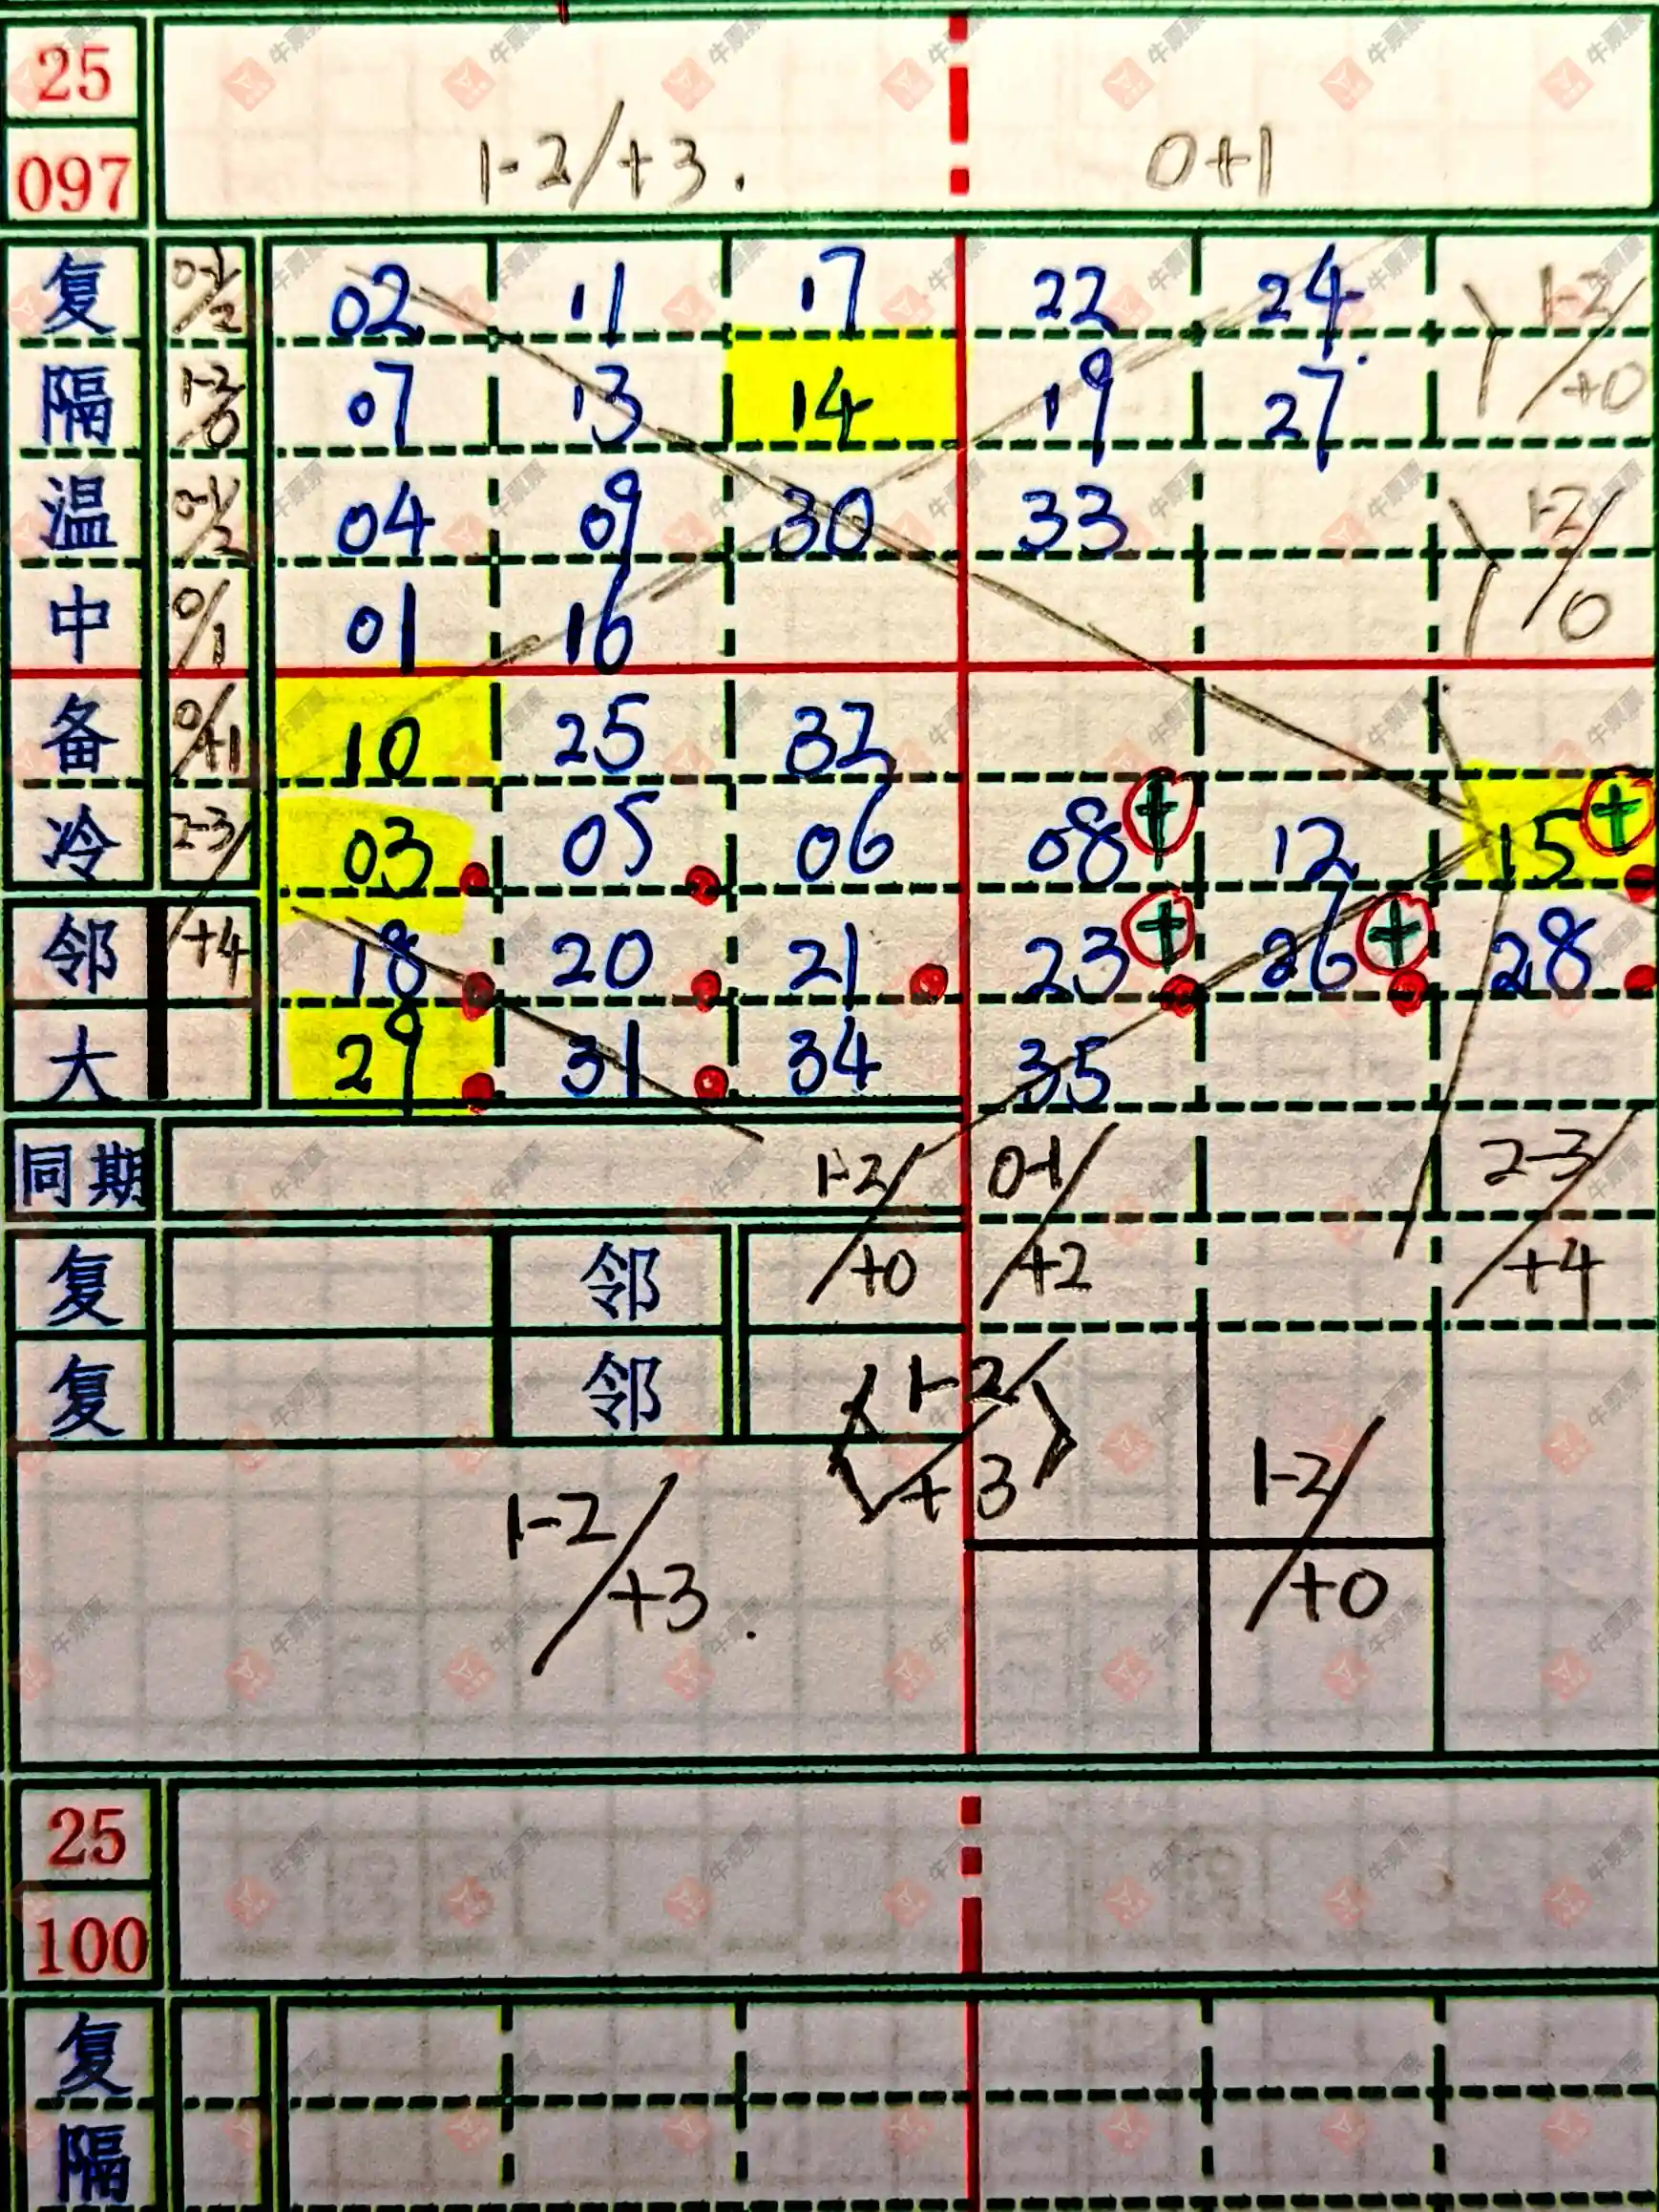 25
097
1-2/+3.
0+1
复 0-1/2 02 11 17 22 24 1-2/+0
隔 1-2/0 07 13 14 19 27
温 0-1/2 04 09 30 33 1-2/0
中 0/1 01 16
备 0/+1 10 25 32
冷 2-3/+4 03 05 06 08 + 12 15 +
邻 18 20 21 23 + 26 + 28
大 29 31 34 35
同期 1-2/+0 0-1/+2 2-3/+4
复 邻
复 邻 1-2/+3
1-2/+3. 1-2/+0
25
100
复
隔
牛票票